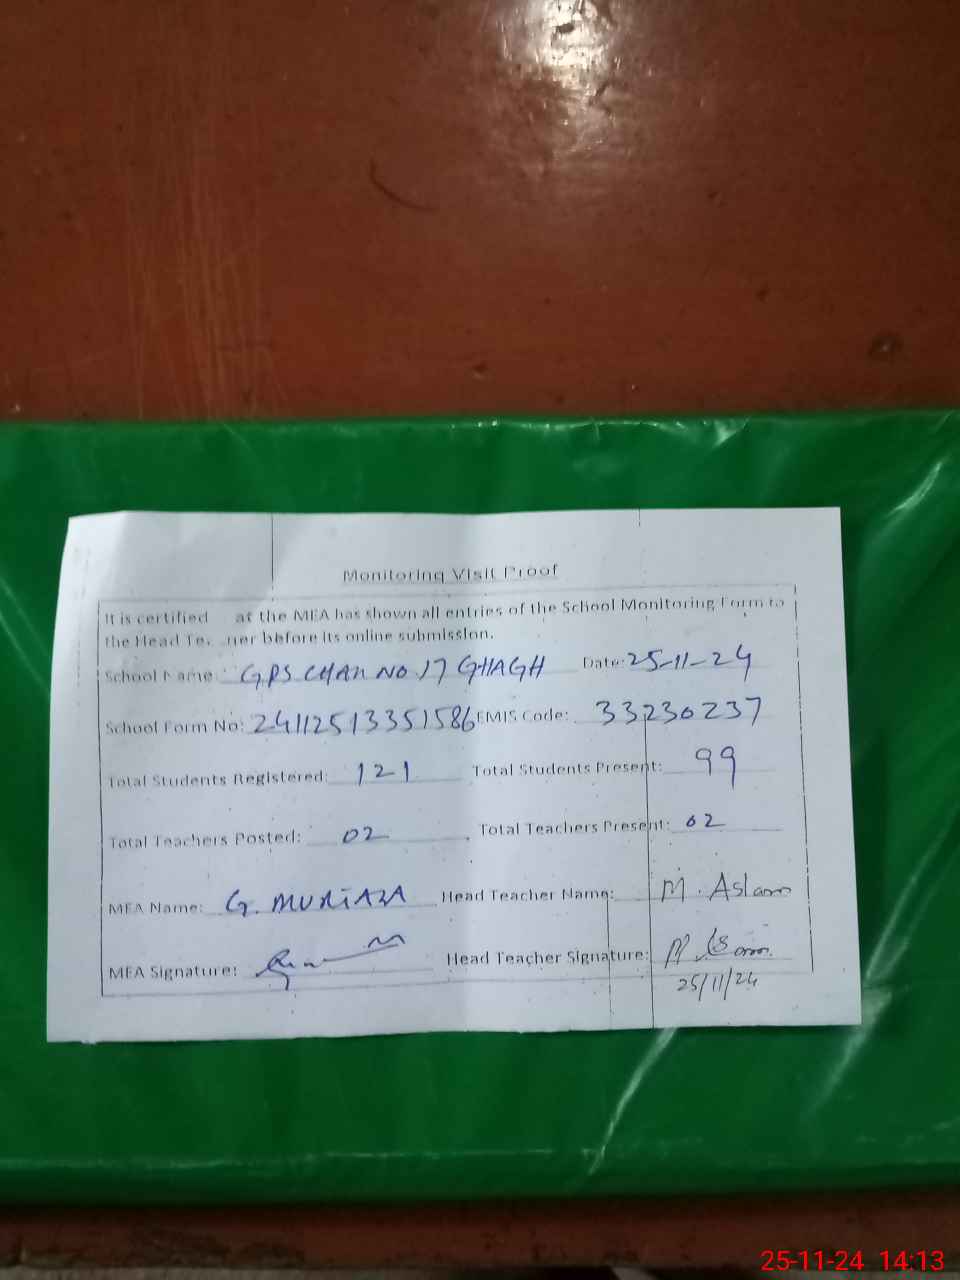 Monitoring Visit Proof
It is certified at the MEA has shown all entries of the School Monitoring Form to
the Head Te. ner before its online submission.
School Name: GPS CHAH NO 17 GHAGH Date: 25-11-24
School Form No: 24112513351586 EMIS Code: 33230237
Total Students Registered: 121 Total Students Present: 99
Total Teachers Posted: 02 Total Teachers Present: 02
MEA Name: G. MURTAZA Head Teacher Name: M. Aslam
MEA Signature: Head Teacher Signature:
25/11/24
25-11-24 14:13